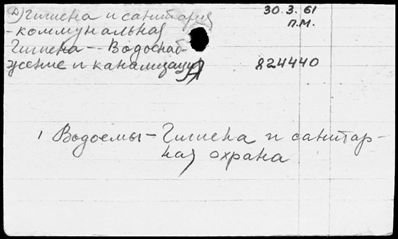 (2) Гигиена и санитария
- коммунальная
Гигиена -- Водоснаб-
жение и канализация
30.3.61
П.М.
824440
1 Водоемы - Гигиена и санитар-
ная охрана